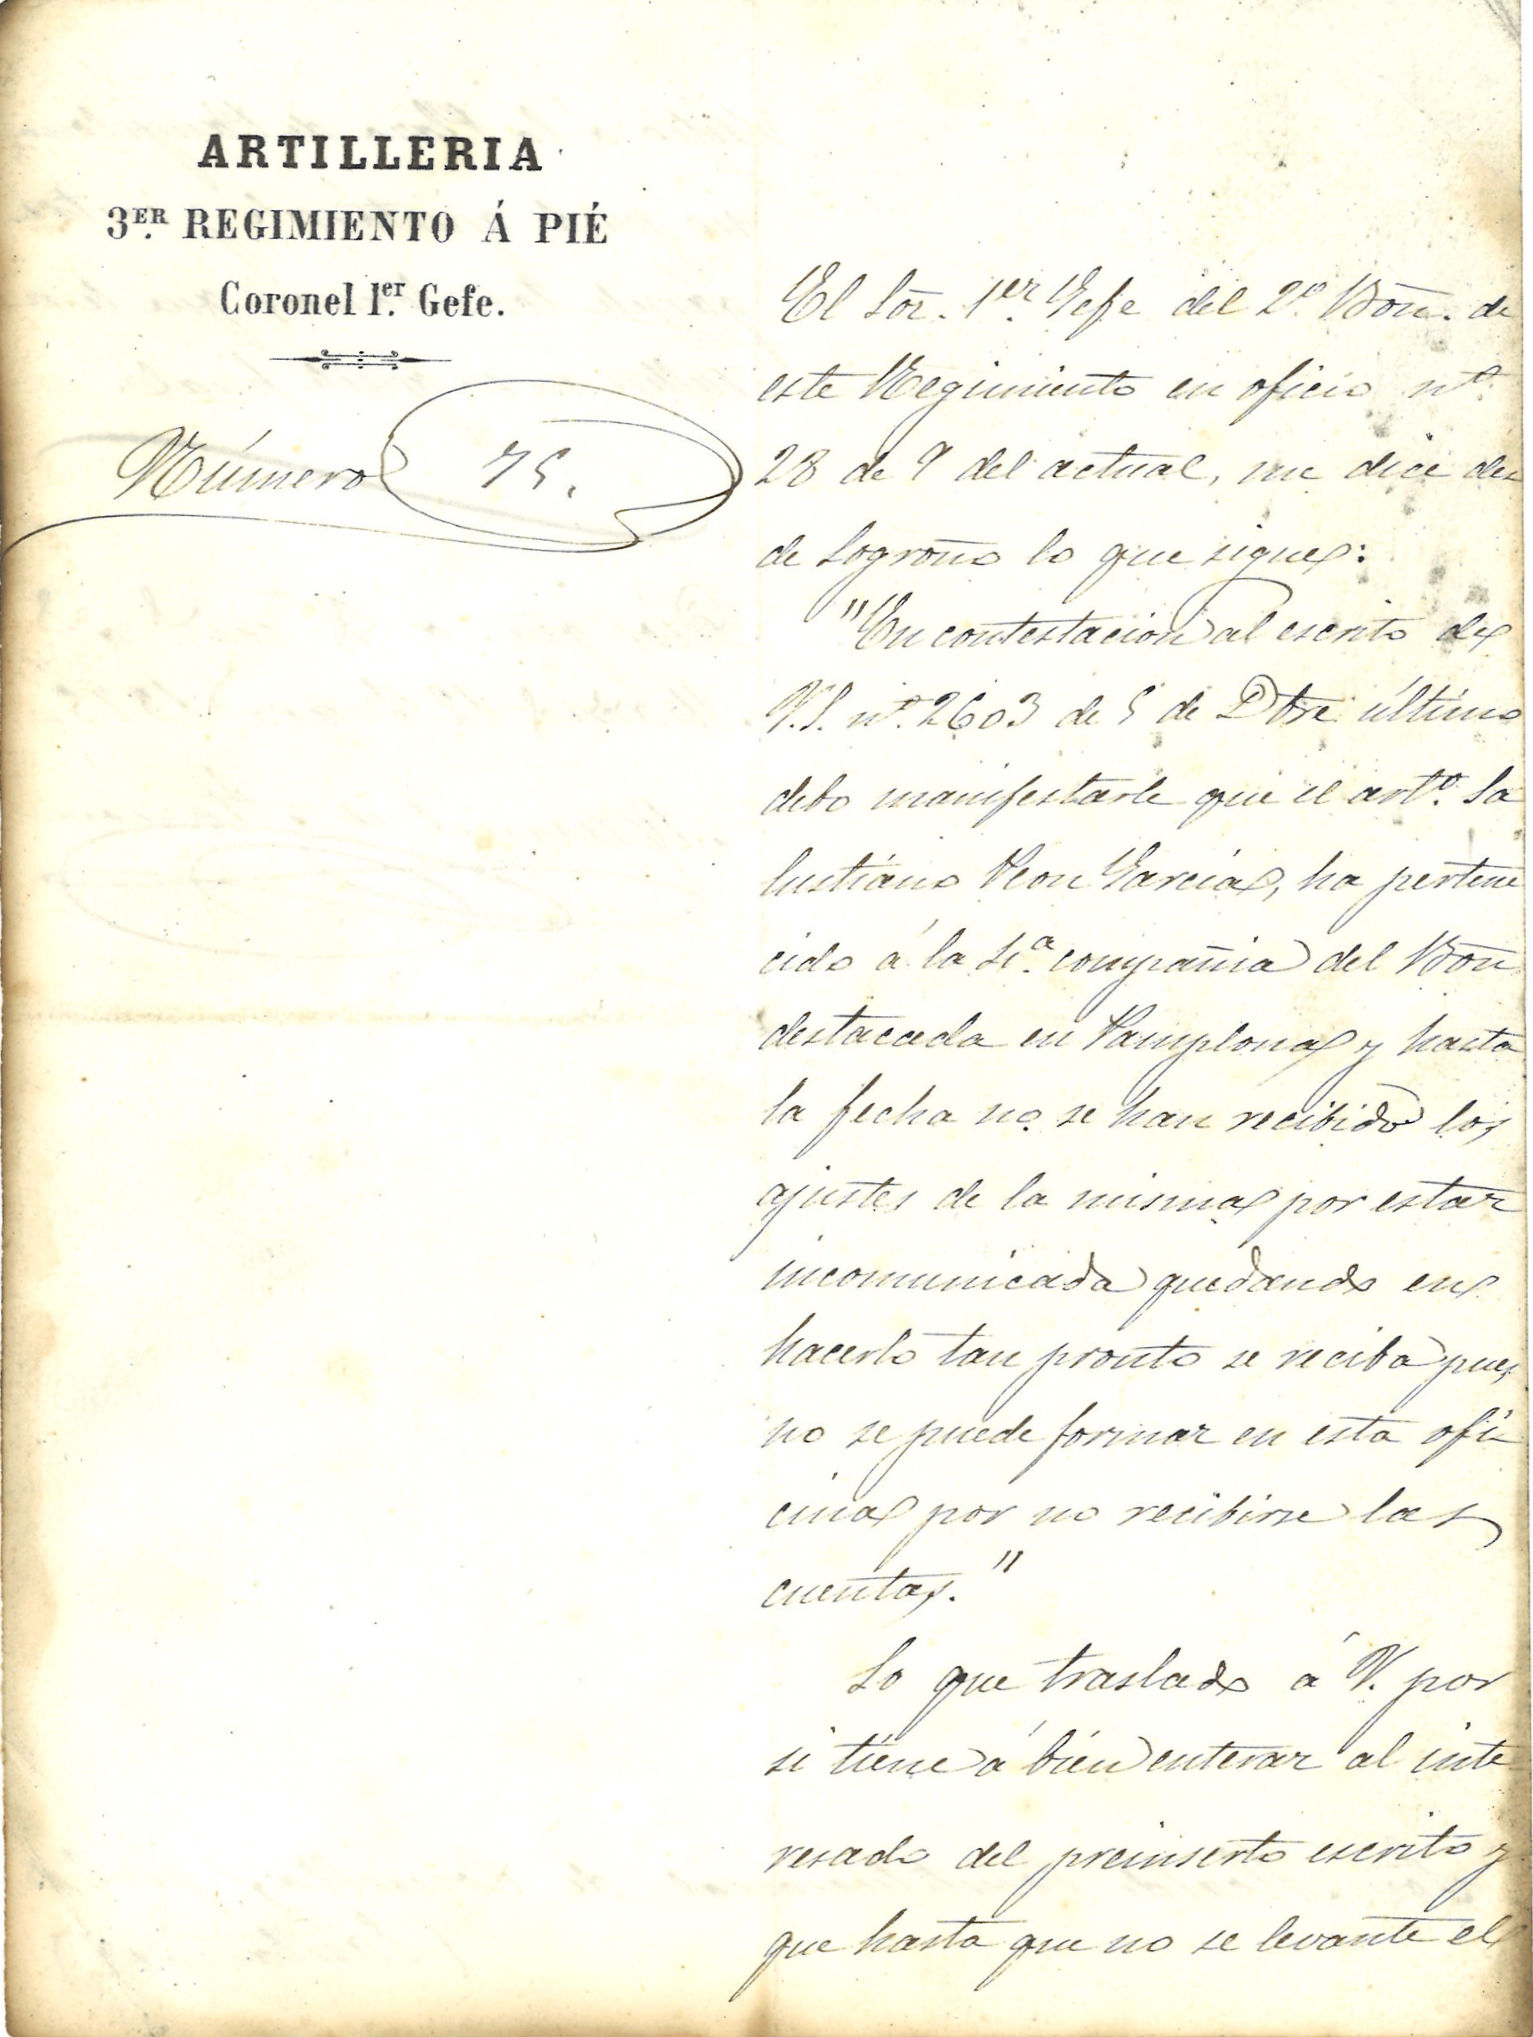 ARTILLERIA
3ER. REGIMIENTO Á PIÉ
Coronel 1er. Gefe.
Número 75.
El Sor. 1er. Gefe del 2º. Bon. de
este Regimiento en oficio nº.
28 de 9 del actual, me dice des
de Logroño lo que sigue:
"En contestacion al escrito de
V.S. nº. 2603 de 5 de Dbre último
debo manifestarle que el artº. Sa
lustiano Leon Garcia, ha pertene
cido á la 4ª. compañia del Bon
destacada en Pamplona y hasta
la fecha no se han recibido los
ajustes de la misma por estar
incomunicada quedando en
hacerlo tan pronto se reciba pues
no se puede formar en esta ofi
cina por no recibirse las
cuentas."
Lo que traslado á V. por
si tiene á bién enterar al inte
resado del preinserto escrito y
que hasta que no se levante el